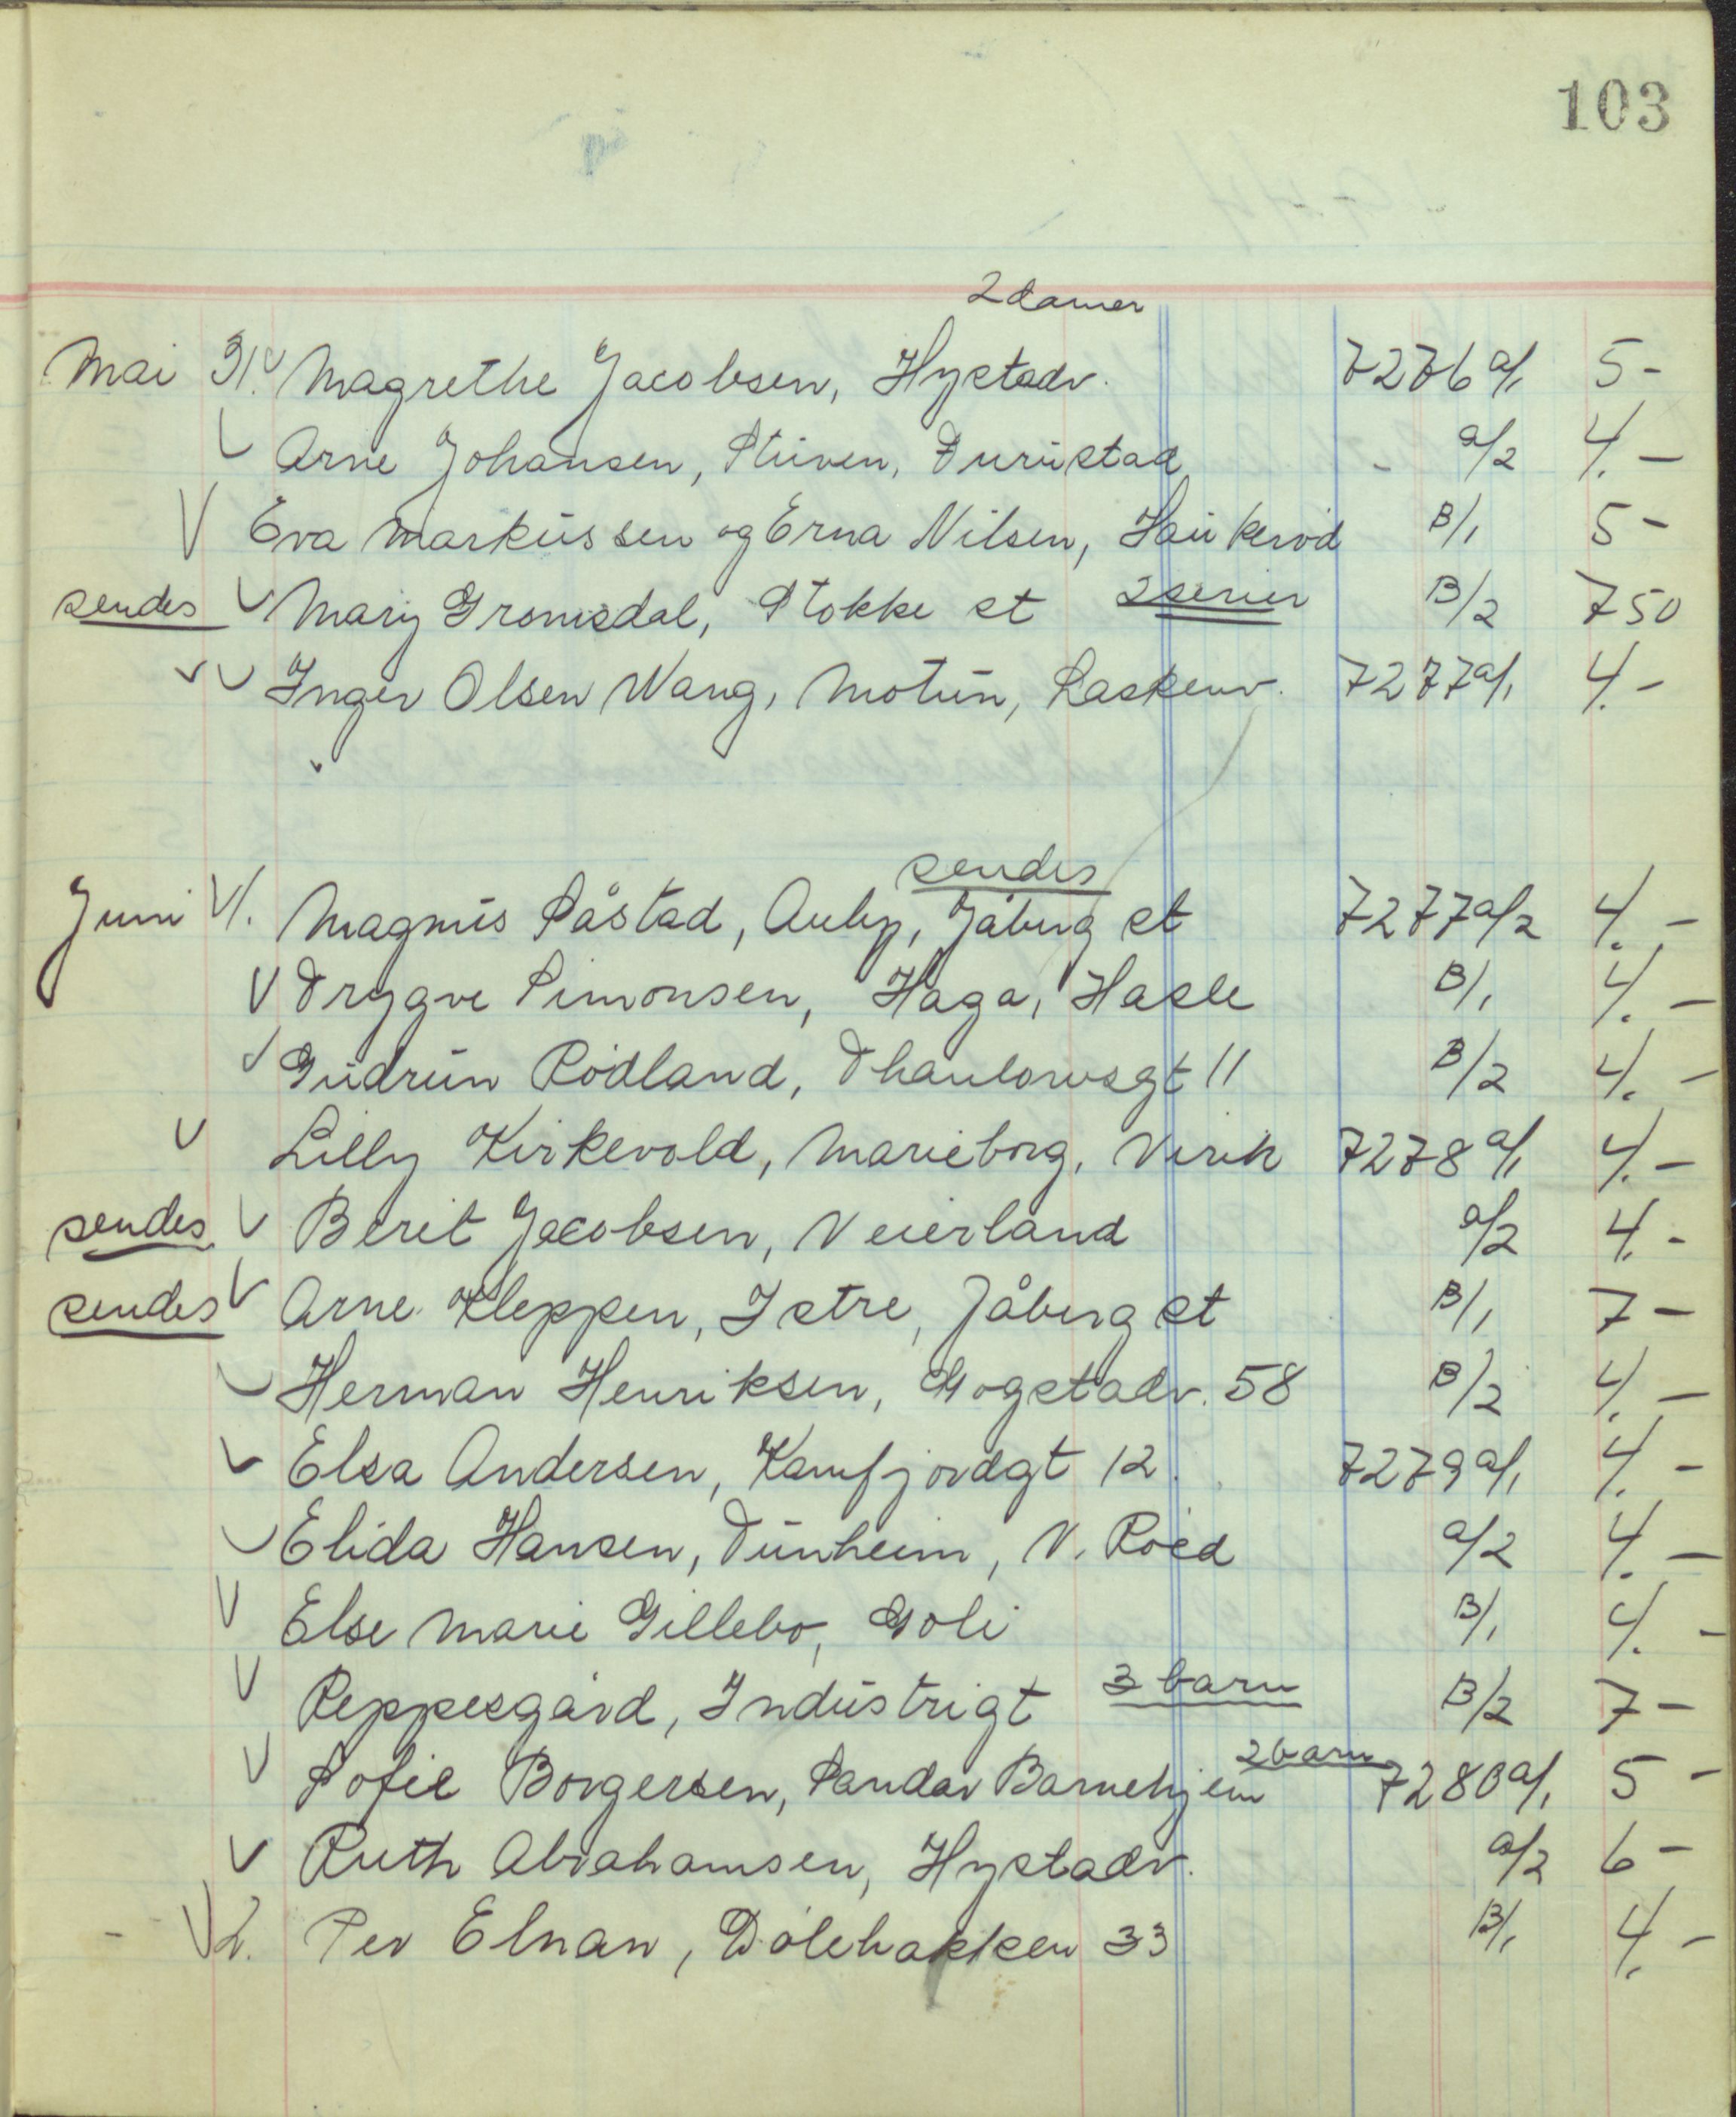 103
2 damer
Mai 31. Magrethe Jacobsen, Hystadv. 7276 a/1 5-
Arne Johansen, Stuven, Furustad - a/2 4.-
Eva Markussen og Erna Nilsen, Haukerød B/1 5-
sendes Mary Gromsdal, Stokke st 2 serier B/2 7 50
Inger Olsen Wang, Motun, Raskenv. 7277 a/1 4.-
sendes
Juni 1. Magnus Såstad, Auby, Jåberg st 7277 a/2 4.-
Trygve Simonsen, Haga, Hasle B/1 4.-
Gudrun Rødland, Thaulowsgt 11 B/2 4.-
Lilly Kirkevold, Marieborg, Virik 7278 a/1 4.-
sendes Berit Jacobsen, Veierland a/2 4.-
sendes Arne Kleppen, Istre, Jåberg st B/1 7-
Herman Henriksen, Gogstadv. 58 B/2 4.-
Elsa Andersen, Kamfjordgt 12. 7279 a/1 4.-
Elida Hansen, Tunheim, N. Roed a/2 4.-
Else Marie Gillebo, Goli B/1 4.-
Reppesgård, Industrigt 3 barn B/2 7-
2 barn
Sofie Borgersen, Sandar Barnehjem 7280 a/1 5-
Ruth Abrahamsen, Hystadv. a/2 6-
- 2. Per Elnan, Dølebakken 33 B/1 4.-